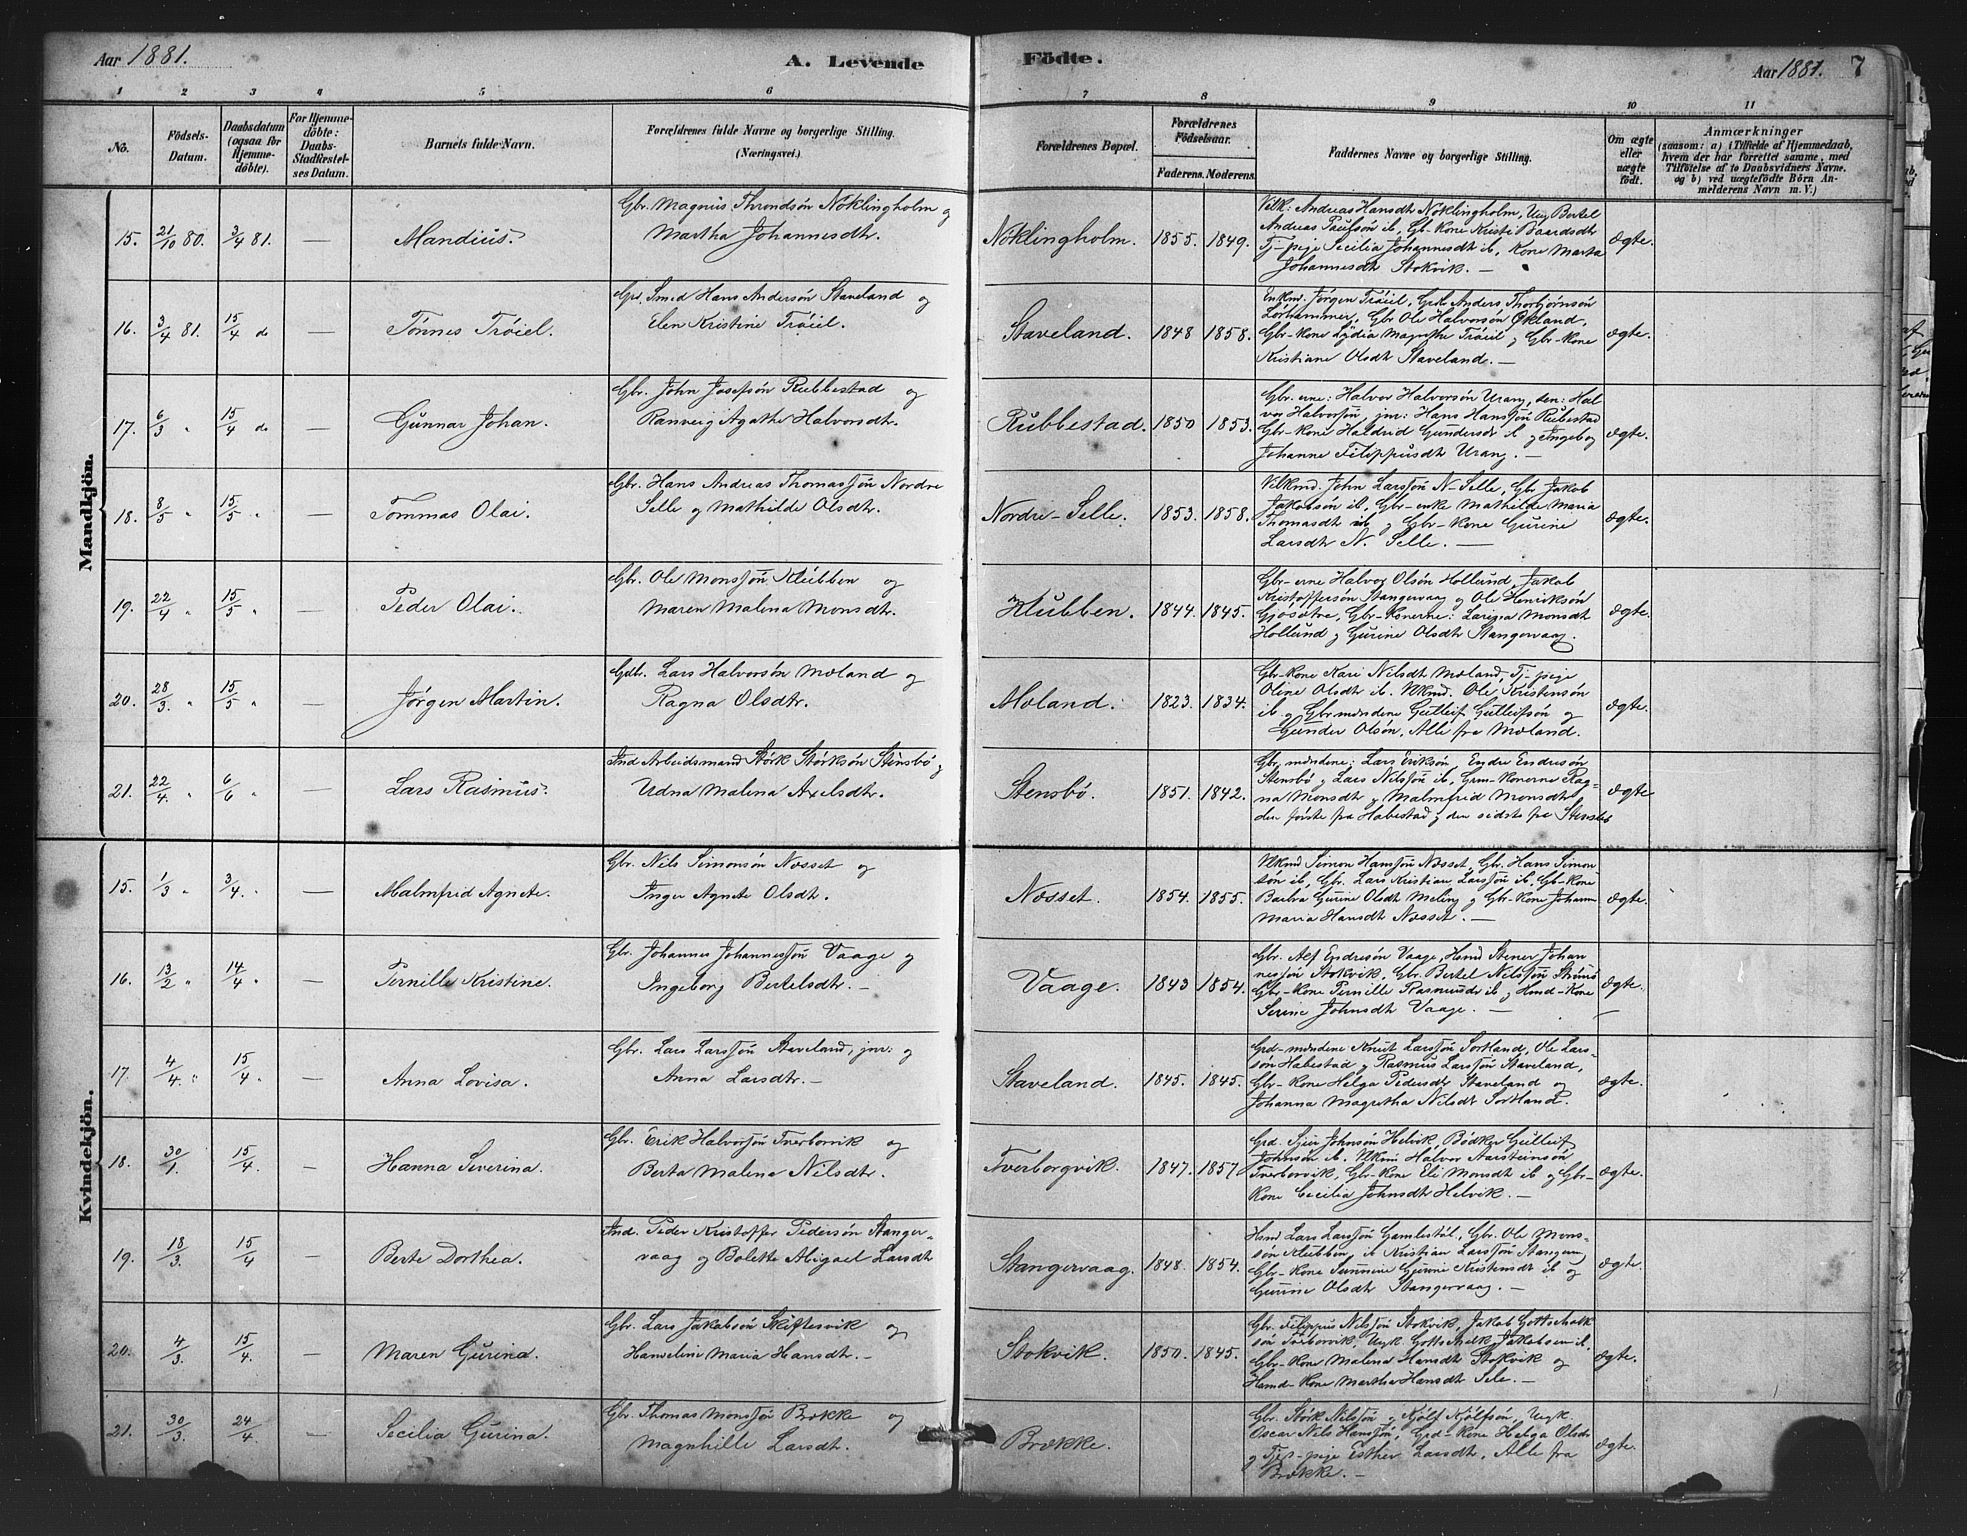 Aar 1881. A. Levende Födte. Aar 1881. 7
1 2 3 4 5 6 7 8 9 10 11
No. Födsels-Datum. Daabsdatum (ogsaa for Hjemmedöbte). For Hjemmedöbte: Daabs-Stadfæstelses Datum. Barnets fulde Navn. Forældrenes fulde Navne og borgerlige Stilling. (Næringsvei.) Forældrenes Bopæl. Forældrenes Födselsaar. Faderens. Moderens. Faddernes Navne og borgerlige Stilling. Om ægte eller uægte födt. Anmærkninger (saasom: a) i Tilfælde af Hjemmedaab, hvem der har forrettet samme, med Tilföielse af to Daabsvidners Navne, og b) ved uægtefödte Börn Anmelderens Navn m. V.)
Mandkjön.
15. 21/10 80. 3/4 81. — Mandius. Gbr. Magnus Throndsön Nöklingholm og
Martha Johannesdtr. Nöklingholm. 1855. 1849. ægte.
Andreas Paulsön ib, Gbr-kone Kristi Baardsdt
Tj-pige Secilia Johannesdt ib, Kone Marta
Johannesdt Stokvik. —
16. 3/4 81. 15/4 do — Tönnes Tröiel. Smed Hans Andersön Staveland og
Elen Kristine Tröiel. Staveland. 1848 1858. ægte.
Enkmd. Jörgen Tröiel, Grd. Anders Thorbjörnsön
Gbr Ole Halvorsön Økland,
Gbr-kone Lydia Magrethe Tröiel og Gbr-kone
Kristiane Olsdt Staveland. —
17. 6/3 " 15/4 do — Gunnar Johan. Gbr. John Josefsön Rubbestad og
Ranveig Agathe Halvorsdtr. Rubbestad. 1850 1853. ægte.
Gbr. erne: Halvor Halvorsön Urang, den: Hal
vor Halvorsön, jnr: Hans Hansson Rubestad
Gbr-kone Haldrid Gundersdt ib og Ingebog
Johanne Filippusdt Urang. —
18. 8/5 " 15/5 " — Tommas Olai. Gbr. Hans Andreas Thomasson Nordre
Selle og Mathilde Olsdtr. Nordre-Selle. 1853. 1858. ægte.
Velkmd. John Larsson N-Selle, Gbr Jakob
Jakobsön ib, Gbr-enke Mathilde Maria
Thomasdt ib og Gbr-kone Gurine
Larsdtr N. Selle. —
19. 22/4 " 15/5 " — Peder Olai. Gbr. Ole Monsson Klubben og
Maren Malena Monsdtr. Klubben. 1844. 1845. ægte.
Gbr-erne Halvor Olsön Hollund, Jakob
Kristoffersön Stangervaag og Ole Henriksön
Gjösætre, Gbr-konerne: Monsdt
Hollund og Gurine Olsdt Stangervaag.
20. 28/3. " 15/5 " — Jörgen Martin. Gbr. Lars Halvorsön Mæland og
Ragna Olsdtr. Mæland. 1823. 1834. ægte.
Gbr-kone Kari Nilsdt Mæland, Tj-pige
Oline Olsdt ib. Ole Kristensön
ib og Gbrmændene Gutleif Gutleifsön og
Gunder Olsön, Alle fra Mæland.
21. 22/4. " 6/6 " — Lars Rasmus. Ind Arbeidsmand Störk Störksön Stensbö og
Udna Malena Axelsdtr. Stensbö. 1851. 1842. ægte
Gbr. mændene: Lars Eriksön, Endre Endresön
Stensbö og Lars Nilsson ib, konerne Rag-
na Monsdt og Malmfrid Monsdt
den förste fra Habestad og den sidste fra Stensbö
Kvindekjön.
15. 1/3 " 3/4. " — Malmfrid Agnete. Gbr. Nils Simonsön Næsset og
Inger Agnete Olsdtr. Næsset. 1854. 1855. ægte.
Simon Hansson Næsset, Gbr. Hans Simon
sön ib, Gbr. Lars Kristian Larsson ib, Gbr-kone
Barbra Gurine Olsdt Meling og Gbr-kone Johann
Maria Hansdt Næsset. —
16. 13/2 " 14/4 " — Pernille Kristine. Gbr. Johannes Johannesson Vaage og
Ingeborg Bertelsdtr. — Vaage. 1843 1854. ægte.
Gbr. Alf Endresön Vaage, Hsmd Stener Johan
nesson Stokvik, Gbr. Bertel Nilsson
Gbr-kone Pernille Rasmusdt ib og Hsmd-Kone
Serine Johnsdt Vaage. —
17. 4/4. " 15/4 " — Anna Lovisa. Gbr. Lars Larsson Staveland, jnr. og
Anna Larsdtr. — Staveland. 1845. 1845. ægte.
Grd-mændene Knut Larsson Sortland, Ole Lars-
sön Habestad og Rasmus Larsson Staveland,
Gbr-kone Helga Pedersdt Staveland og
Johanna Magretha Nilsdt Sortland.
18. 30/1. 15/4. — Hanna Severina. Gbr. Erik Halvorsson Tverborvik og
Berta Malena Nilsdtr. Tverborgvik. 1847. 1857 ægte.
Grd. Johnsön Helvik, Bödker Gutleif
Johnsön ib. Halvor Aarsteinsön
Tverborvik, Gbr-kone Eli Monsdt ib og Gbr-
kone Cecilia Johnsdt Helvik. —
19. 18/3. 15/4 — Berte Dorthea. Ind. Peder Kristoffer Pedersön Stanger-
vaag og Bolette Abigael Larsdt Stangervaag. 1848. 1854. ægte.
Hsmd Lars Larsson Gamlestöl, Gbr. Ole Mons-
sön Klubben, ib Kristian Larsson Stangerv
Gbr-kone Gurine Kristensdt ib og
Gurine Olsdt Stangervaag. —
20. 4/3. 15/4. — Maren Gurina. Gbr. Lars Jakobsön Skiftesvik og
Hanseline Maria Hansdtr. — Stokvik. 1850. 1845. ægte.
Gbr. Filippus Nilsson Stokvik, Jakob Gottschalk
sön Tverborvik, Ungk Gottschalk Jakobsen ib,
Gbr-kone Malena Hansdt Stokvik og
Hsmd-kone Martha Hansdt Sele. —
21. 30/3. 24/4. — Secilia Gurina. Gbr. Thomas Monsson Brække og
Magnhille Larsdtr. Brække. ægte.
Gbr. Störk Nilsson og Kjölf Kjölfsön, Ungk
Oscar Nils Hansson, Grd-kone Helga Olsdt
og pige Esther Larsdt, Alle fra
Brække. —